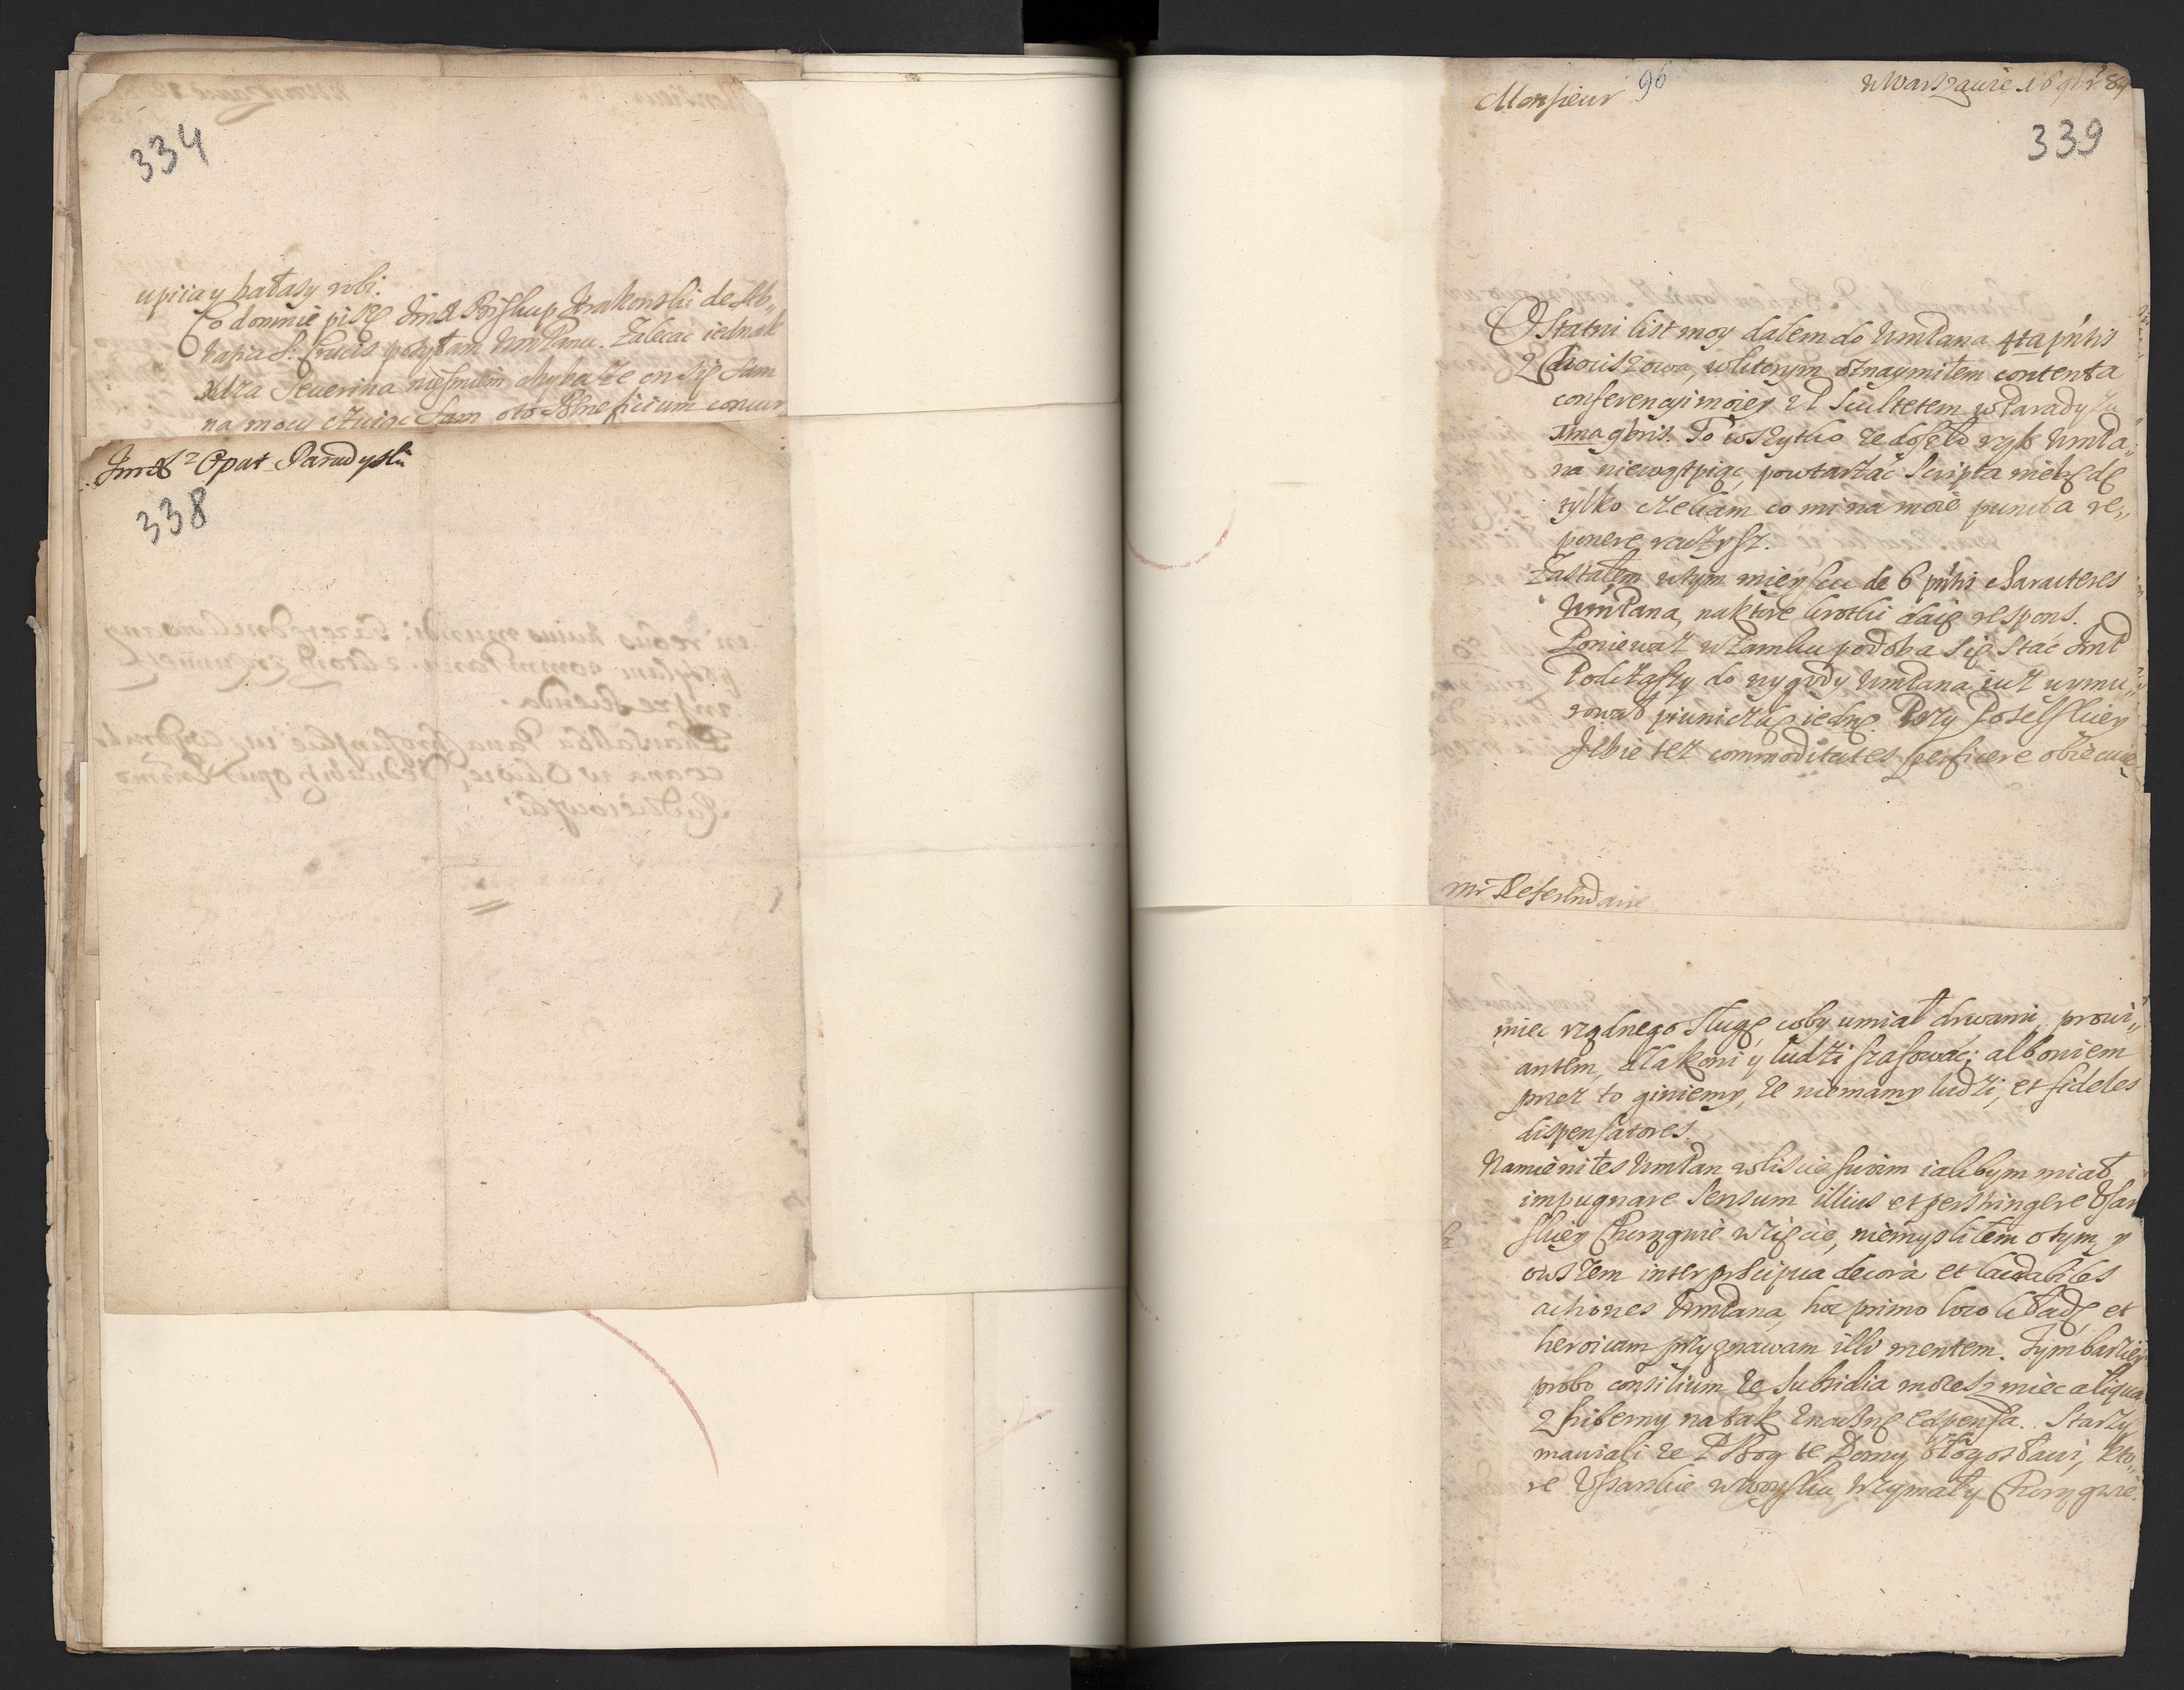 334
upiia y hałasy robi.
Co do mnie pisze Jmć Xiądz Biskup Krakowski de Ab„
batia S. Crucis posyłam WmPanu. Zalecać iednak
xdza Severina nieśmiem chyba że on się sam
na mocy czuiąc sam o to Beneficium concur
Jmć X Opat Paradyski
338
Monsieur
96
w Warszawie 16 9br 89
339
Ostatni list moy dałem do WmPana 4ta pntis
z Chociszowa, w ktorym oznaymiłem contenta
conferencyi moiey z P. Scultetem w Paradyżu
1ma 9bris. To wszytko że doszło rąk WmPa„
na niewątpiąc, powtarzać scripta niebędę
tylko czekam co mi na moie puncta re„
ponere raczysz.
Zastałem w tym mieyscu de 6 pntis characteres
WmPana, na ktore krotki daię respons.
Ponieważ w Zamku podoba się stać JmP
Podczaszy do wygody WmPana iuż wymu„
rował piwniczkę iednę. Przy Poselskiey
Izbie też commoditates perficere obiecuie
Mr Referendaire
miec rządnego sługę coby umiał drwami, prowi„
antem, dla koni y ludzi szafować; alboniem
przez to giniemy, że niemamy ludzi, et fideles
dispensatores.
Namieniłes WmPan w liscie swoim iakbym miał
impugnare sensum illius et perstringere Usar
skiey Chorągwie wzięcie, niemysliłem o tym, y
owszem inter præcipua decora et laudabiles
actiones WmPana, hoc primo loco kładę, et
heroicam przyznawam illi mentem. Tym barziey
probo consilium że subsidia możesz miec aliqua
z hiberny na tak znaczną expensę. Starzy
mawiali że P. Bog te Domy błogosławi, kto„
re Usarskie w woysku trzymały Chorągwie.